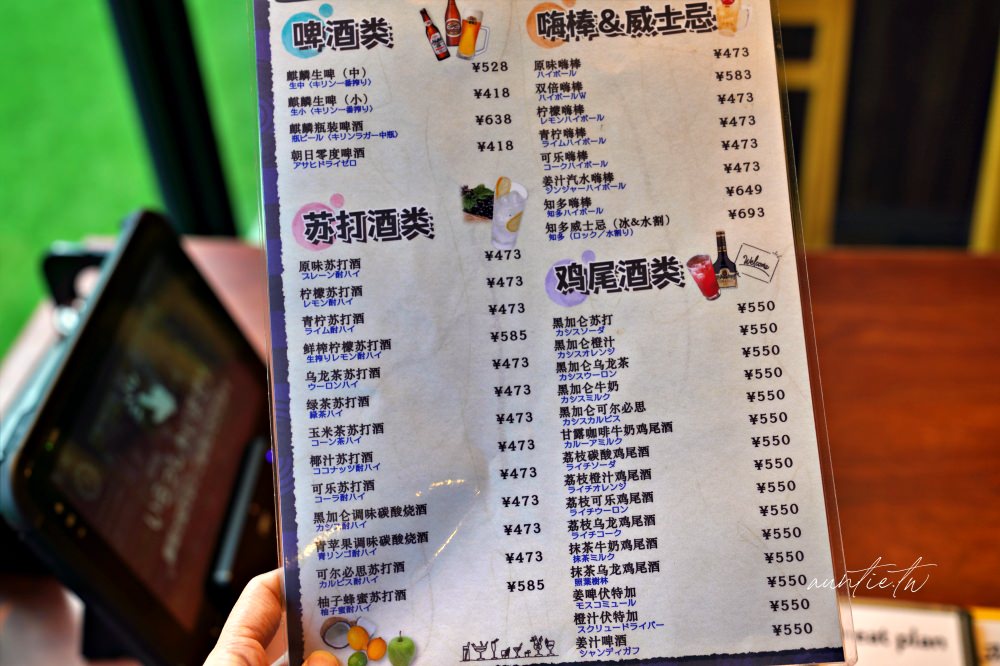 啤酒类
麒麟生啤（中） ¥528
生中（キリン一番搾り）
麒麟生啤（小） ¥418
生小（キリン一番搾り）
麒麟瓶装啤酒 ¥638
瓶ビール（キリンラガー中瓶）
朝日零度啤酒 ¥418
アサヒドライゼロ
苏打酒类
原味苏打酒 ¥473
プレーン酎ハイ
柠檬苏打酒 ¥473
レモン酎ハイ
青柠苏打酒 ¥473
ライム酎ハイ
鲜榨柠檬苏打酒 ¥585
生搾りレモン酎ハイ
乌龙茶苏打酒 ¥473
ウーロンハイ
绿茶苏打酒 ¥473
緑茶ハイ
玉米茶苏打酒 ¥473
コーン茶ハイ
椰汁苏打酒 ¥473
ココナッツ酎ハイ
可乐苏打酒 ¥473
コーラ酎ハイ
黑加仑调味碳酸烧酒 ¥473
カシス酎ハイ
青苹果调味碳酸烧酒 ¥473
青リンゴ酎ハイ
可尔必思苏打酒 ¥473
カルピス酎ハイ
柚子蜂蜜苏打酒 ¥585
柚子蜜酎ハイ
嗨棒&威士忌
原味嗨棒 ¥473
ハイボール
双倍嗨棒 ¥583
ハイボールW
柠檬嗨棒 ¥473
レモンハイボール
青柠嗨棒 ¥473
ライムハイボール
可乐嗨棒 ¥473
コークハイボール
姜汁汽水嗨棒 ¥473
ジンジャーハイボール
知多嗨棒 ¥649
知多ハイボール
知多威士忌（冰&水割） ¥693
知多（ロック／水割り）
鸡尾酒类
Welcome
黑加仑苏打 ¥550
カシスソーダ
黑加仑橙汁 ¥550
カシスオレンジ
黑加仑乌龙茶 ¥550
カシスウーロン
黑加仑牛奶 ¥550
カシスミルク
黑加仑可尔必思 ¥550
カシスカルピス
甘露咖啡牛奶鸡尾酒 ¥550
カルーアミルク
荔枝碳酸鸡尾酒 ¥550
ライチソーダ
荔枝橙汁鸡尾酒 ¥550
ライチオレンジ
荔枝可乐鸡尾酒 ¥550
ライチウーロン
荔枝乌龙鸡尾酒 ¥550
ライチコーク
抹茶牛奶鸡尾酒 ¥550
抹茶ミルク
抹茶乌龙鸡尾酒 ¥550
照葉樹林
姜啤伏特加 ¥550
モスコミュール
橙汁伏特加 ¥550
スクリュードライバー
姜汁啤酒 ¥550
シャンディガフ
auntie.tw
eat plan